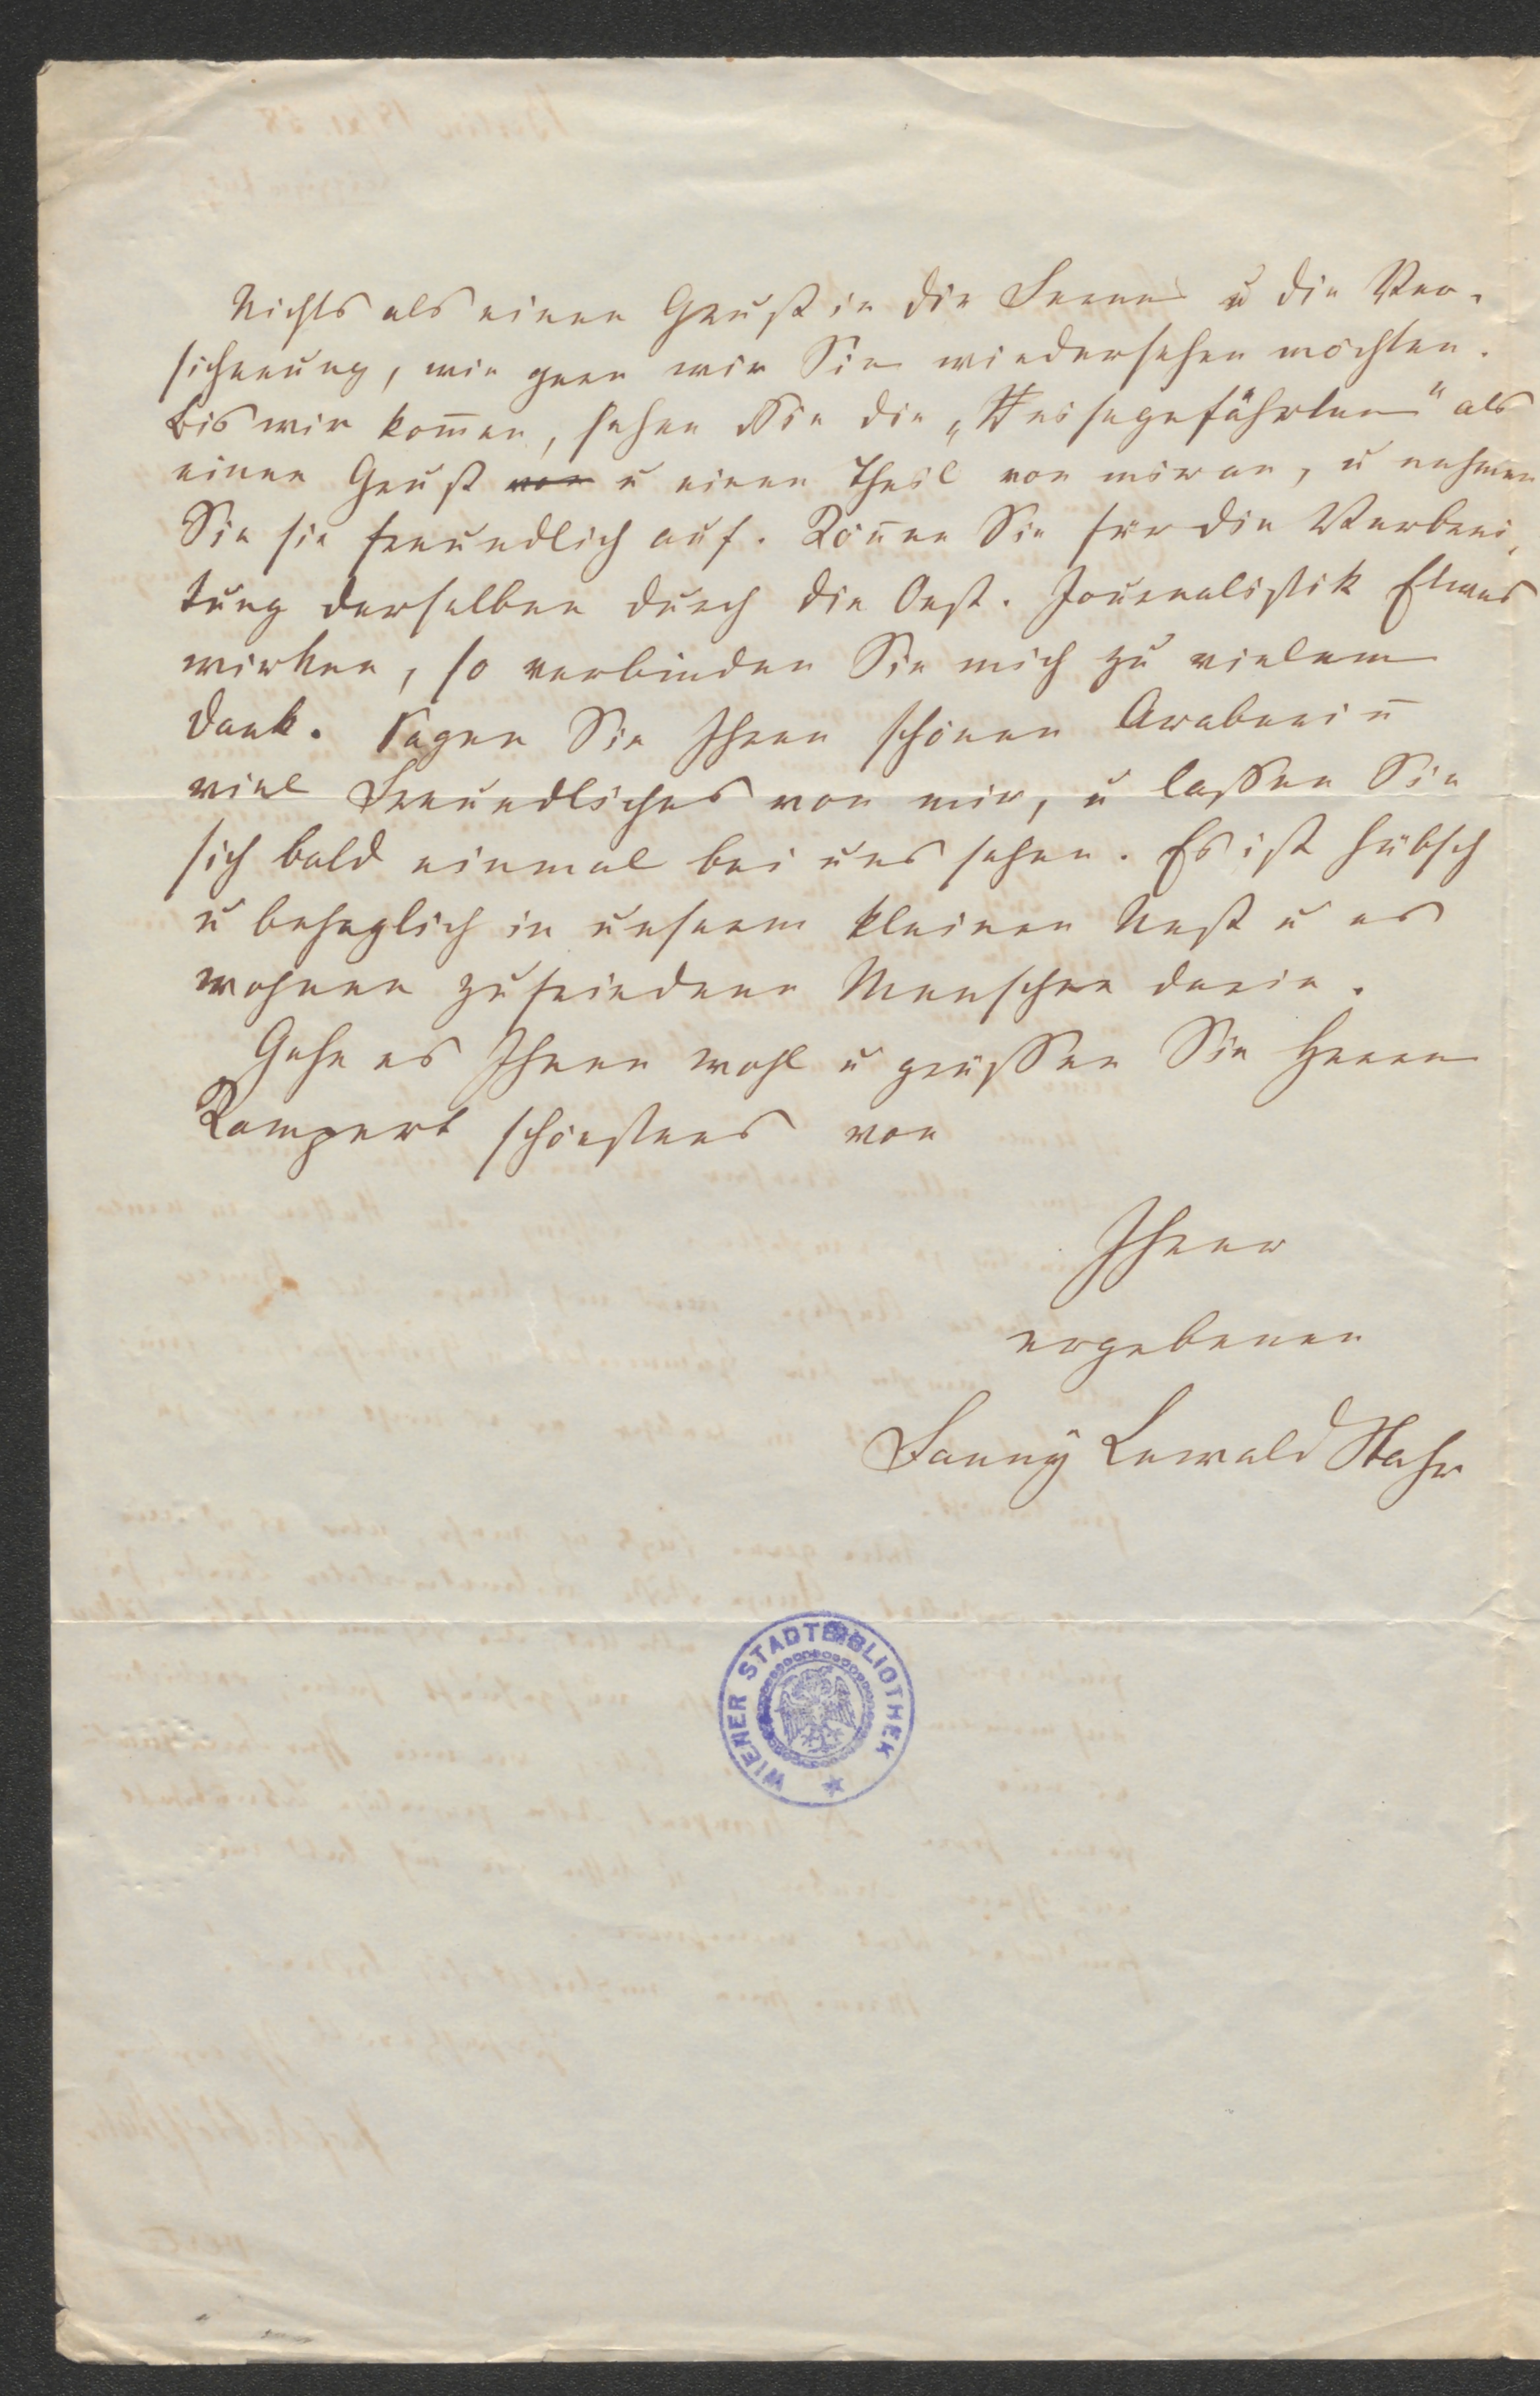 Nichts als einen Gruß in die Ferne u die Ver-
sicherung, wie gern wir Sie wiedersehen möchten.
Bis wir kom̄en, sehen Sie die „Reisegefährten" als
einen Gruß von u einen Theil von mir an, u nehmen
Sie sie freundlich auf. Kön̄en Sie für die Verbrei-
tung derselben durch die Oest. Journalistik Etwas
wirken, so verbinden Sie mich zu vielem
Dank. Sagen Sie Ihrer schönen Araberin̄
viel Freundliches von mir, u lassen Sie
sich bald einmal bei uns sehen. Es ist hübsch
u behaglich in unserm kleinen Nest u es
wohnen zufriedene Menschen darin.
Gehe es Ihnen wohl u grüssen Sie Herrn
Kompert schönstens von
Ihrer
ergebenen
Fanny Lewald Stahr
WIENER STADTBIBLIOTHEK